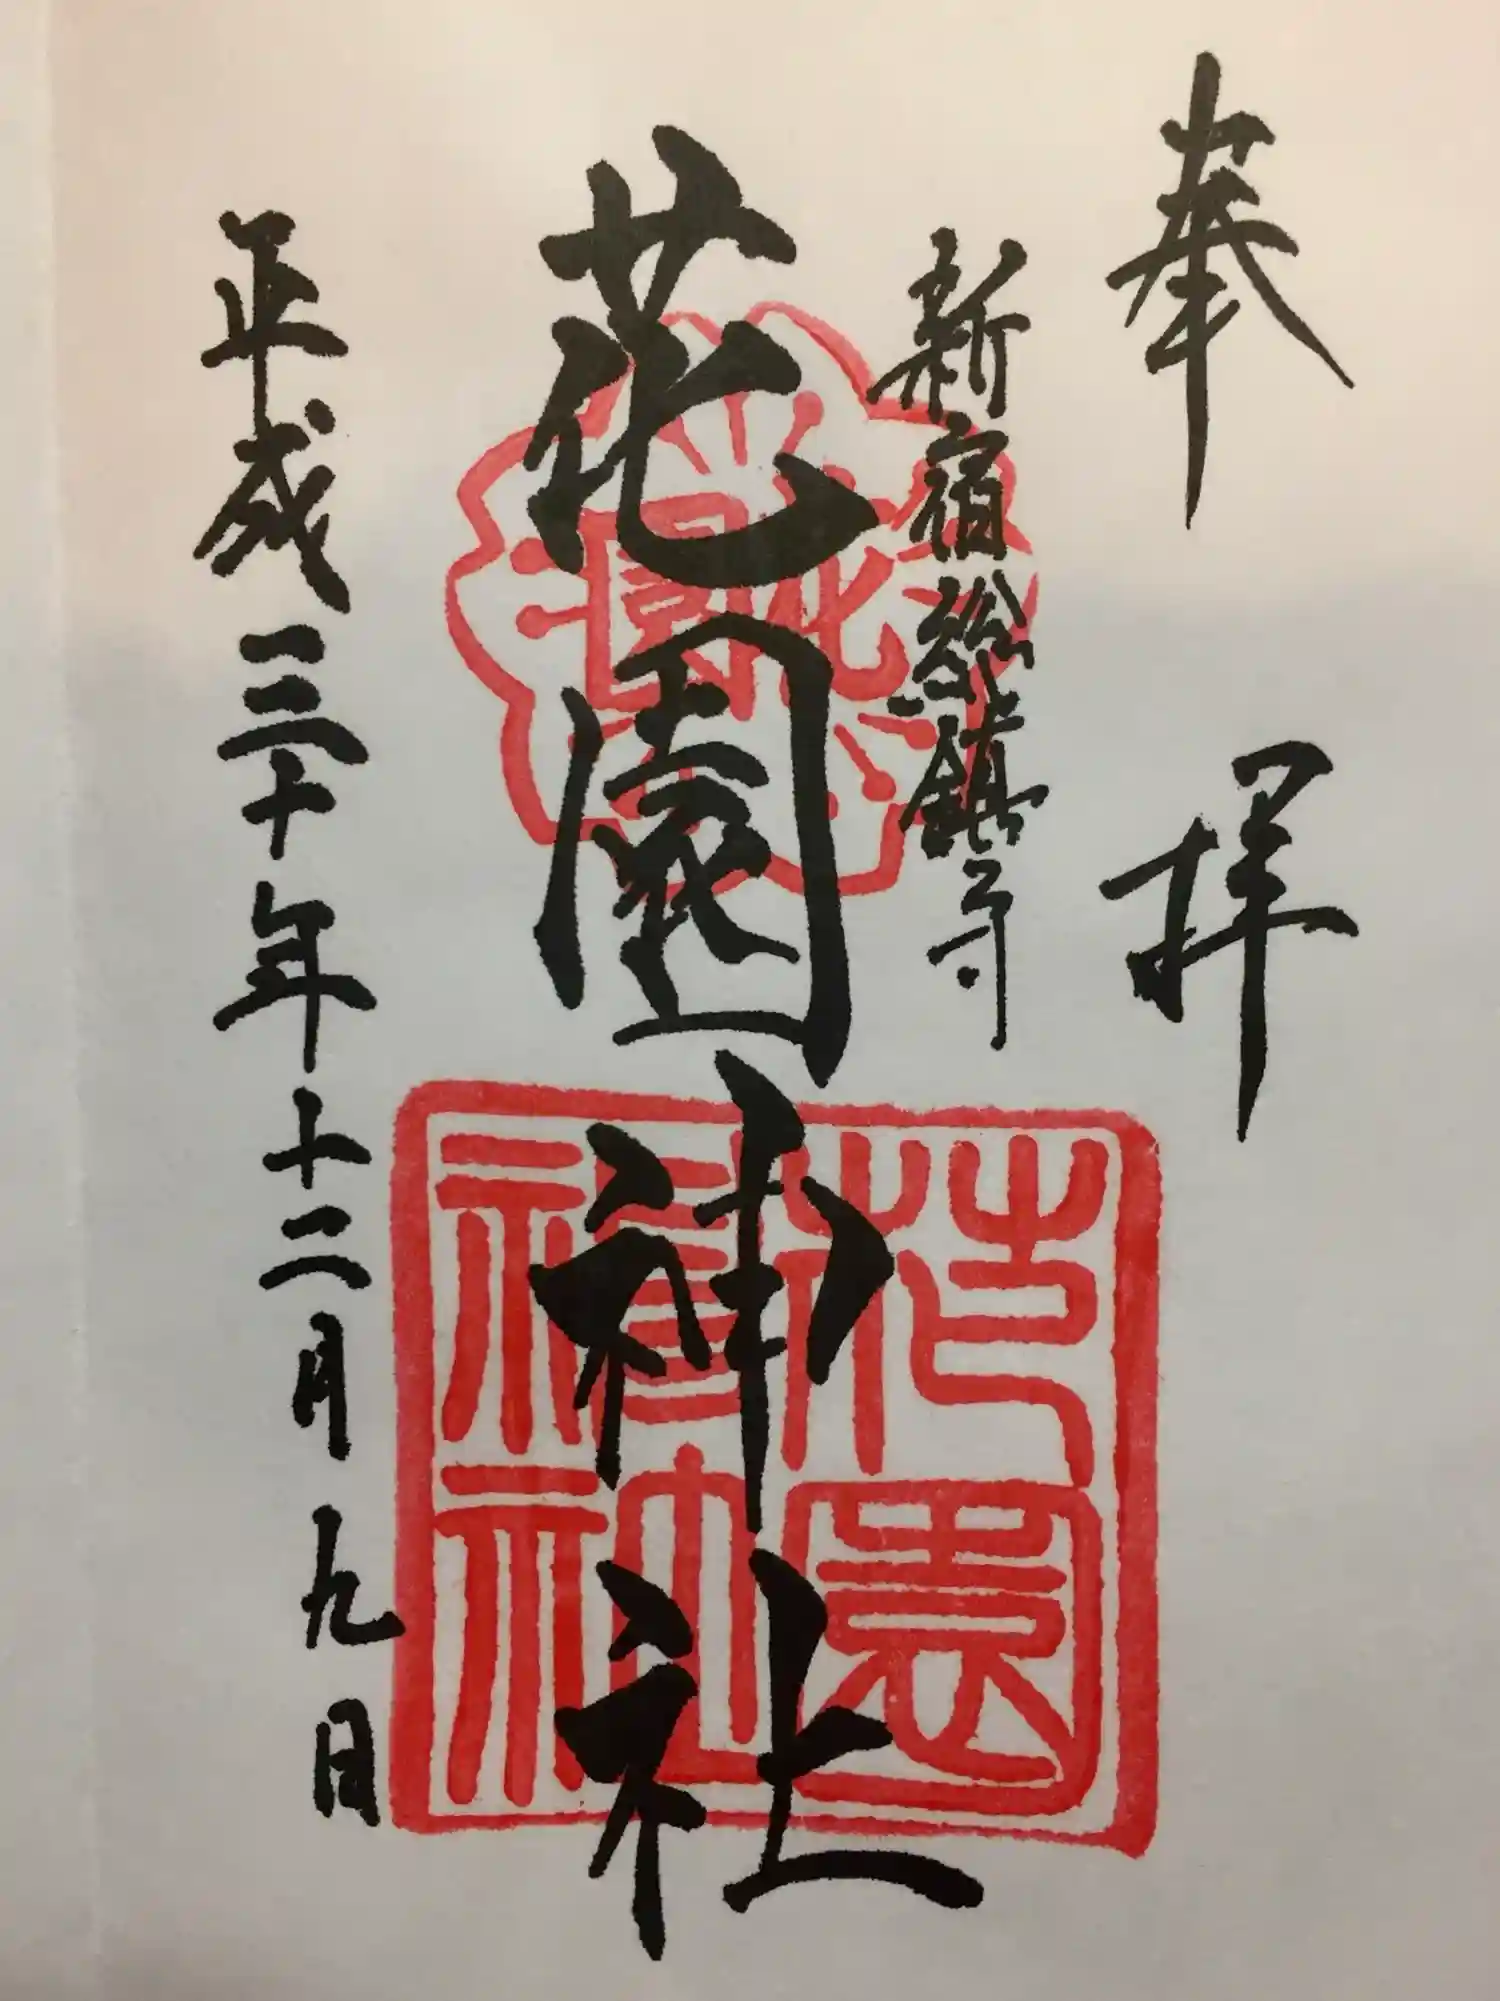 奉拝
新宿総鎮守
花園神社
平成三十年十二月九日
花園
花園神社